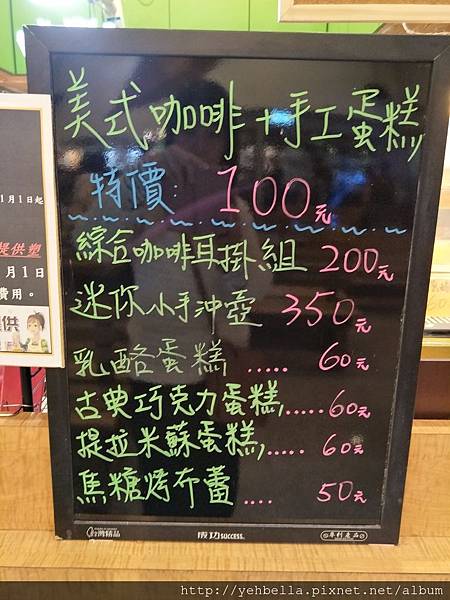 美式咖啡+手工蛋糕
特價: 100元
綜合咖啡耳掛組 200元
迷你小手沖壺 350元
乳酪蛋糕..... 60元
古典巧克力蛋糕..... 60元
提拉米蘇蛋糕..... 60元
焦糖烤布蕾.... 50元
台灣精品
成功 SUCCESS.
專利產品
1月1日起
提供塑
月1日
費用。
供
http://yehbella.pixnet.net/album